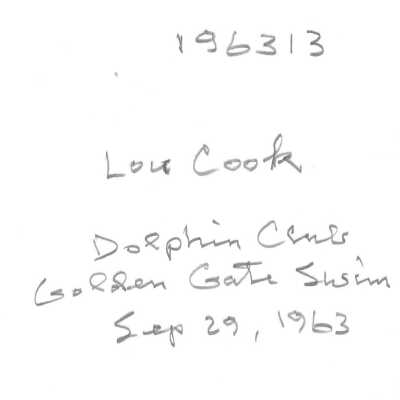 196313
Lou Cook
Dolphin Club
Golden Gate Swim
Sep 29, 1963